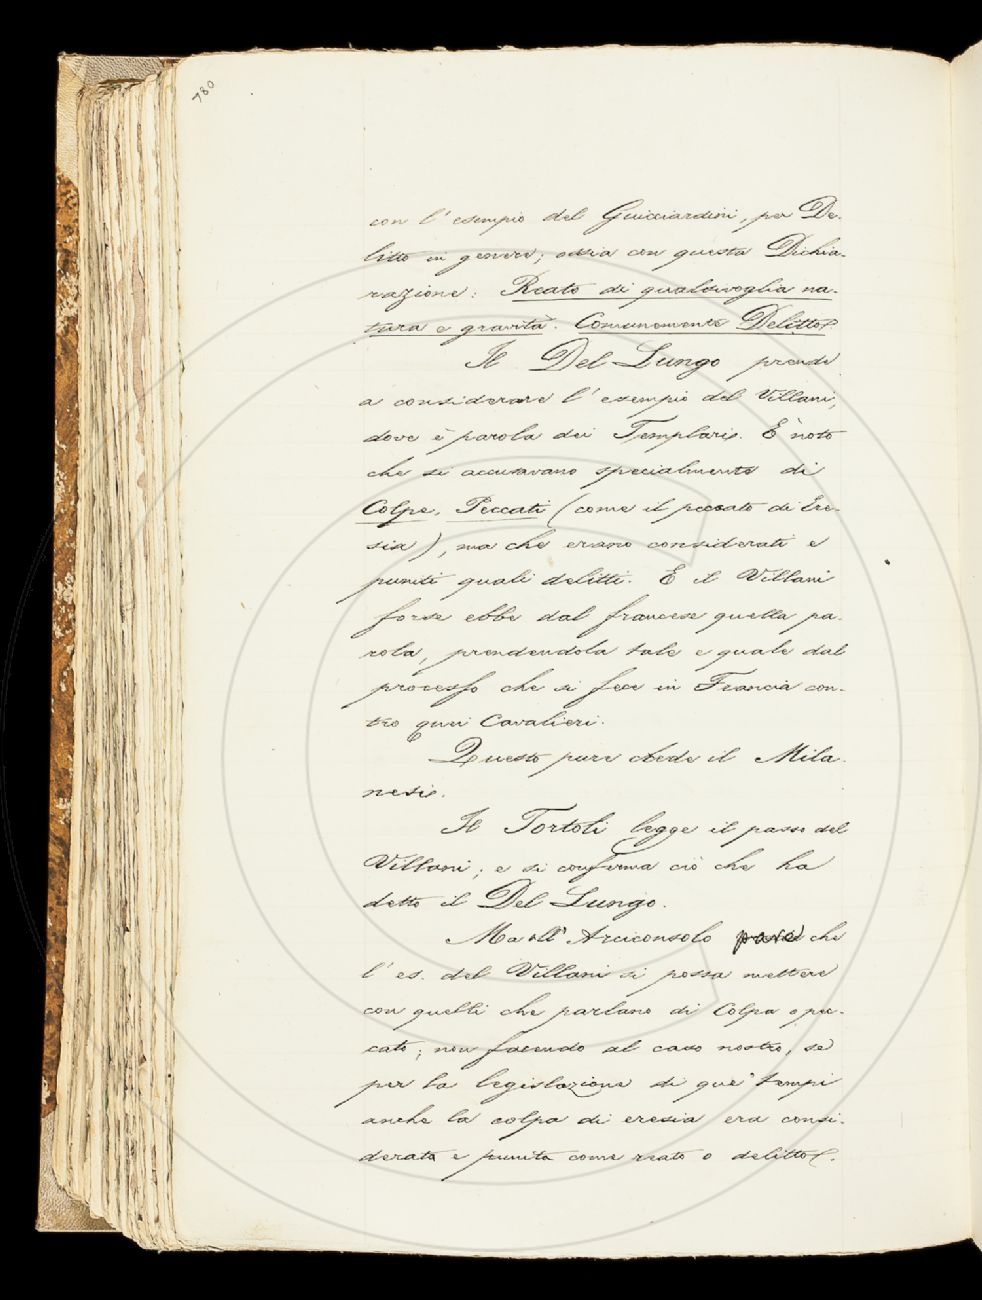 780
con l'esempio del Guicciardini, per De-
litto in genere; ossia con questa Dichia-
razione: Reato di qualsivoglia na-
tura e gravità. Comunemente Delitto.
Il Del Lungo prende
a considerare l'esempio del Villani,
dove è parola dei Templari. È noto
che si accusavano specialmente di
Colpe, Peccati (come il peccato di Ere-
sia), ma che erano considerati e
puniti quali delitti. E il Villani
forse ebbe dal francese quella pa-
rola, prendendola tale e quale dal
processo che si fece in Francia con-
tro quei Cavalieri.
Questo pure chede il Mila-
nesi.
Il Tortoli legge il passo del
Villani; e si conferma ciò che ha
detto il Del Lungo.
Ma all'Arciconsolo pare che
l'es. del Villani si possa mettere
con quelli che parlano di Colpa o pec-
cato; non facendo al caso nostro, se
per la legislazione di que' tempi
anche la colpa di eresia era consi-
derata e punita come reato o delitto.